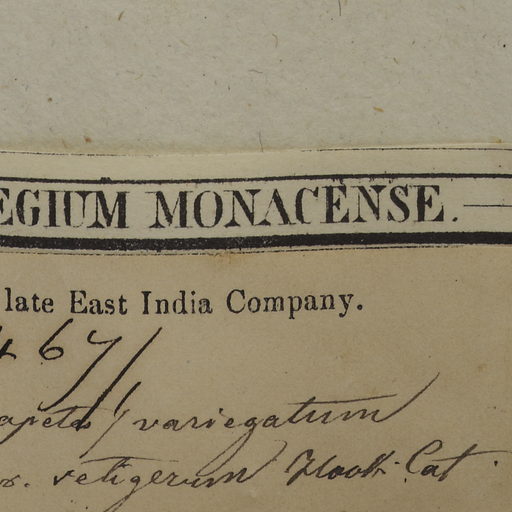 EGIUM MONACENSE.
late East India Company.
467/1
apetos/ variegatum
setigerum Hook. Cat.